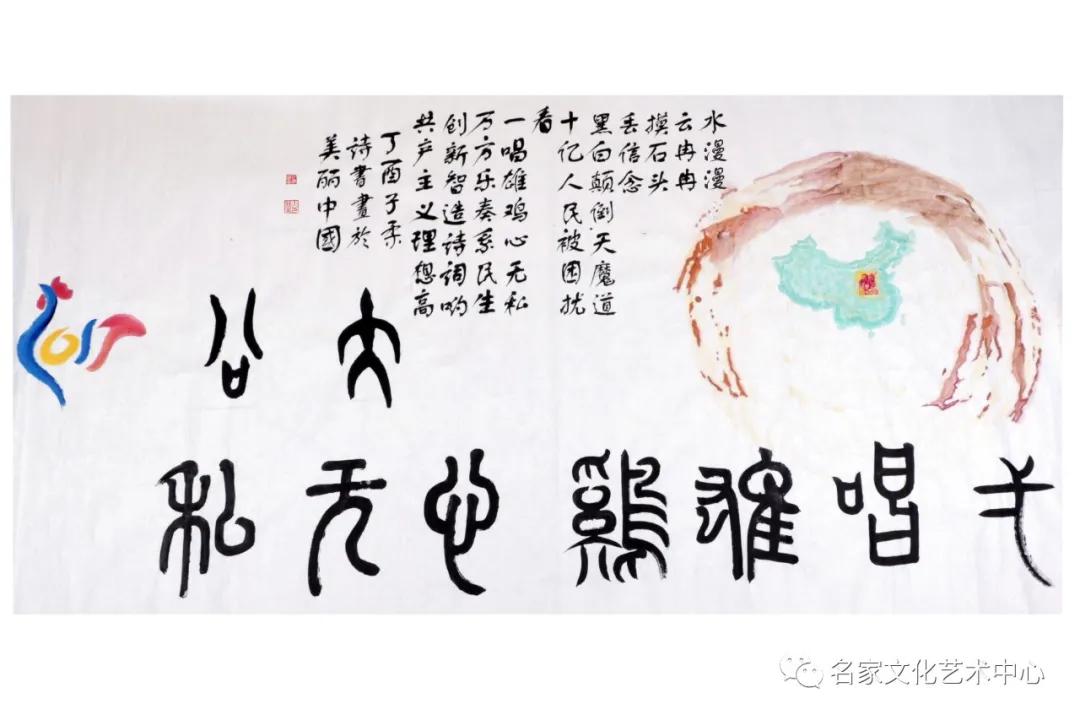 水漫漫
云冉冉
摸石头
丢信念
黑白颠倒天魔道
十亿人民被困扰
看
一唱雄鸡心无私
万方乐奏系民生
创新智造诗词哟
共产主义理想高
丁酉子
詩書畫於
美丽中國
大公
唱雄鷄心无私
2017
名家文化艺术中心